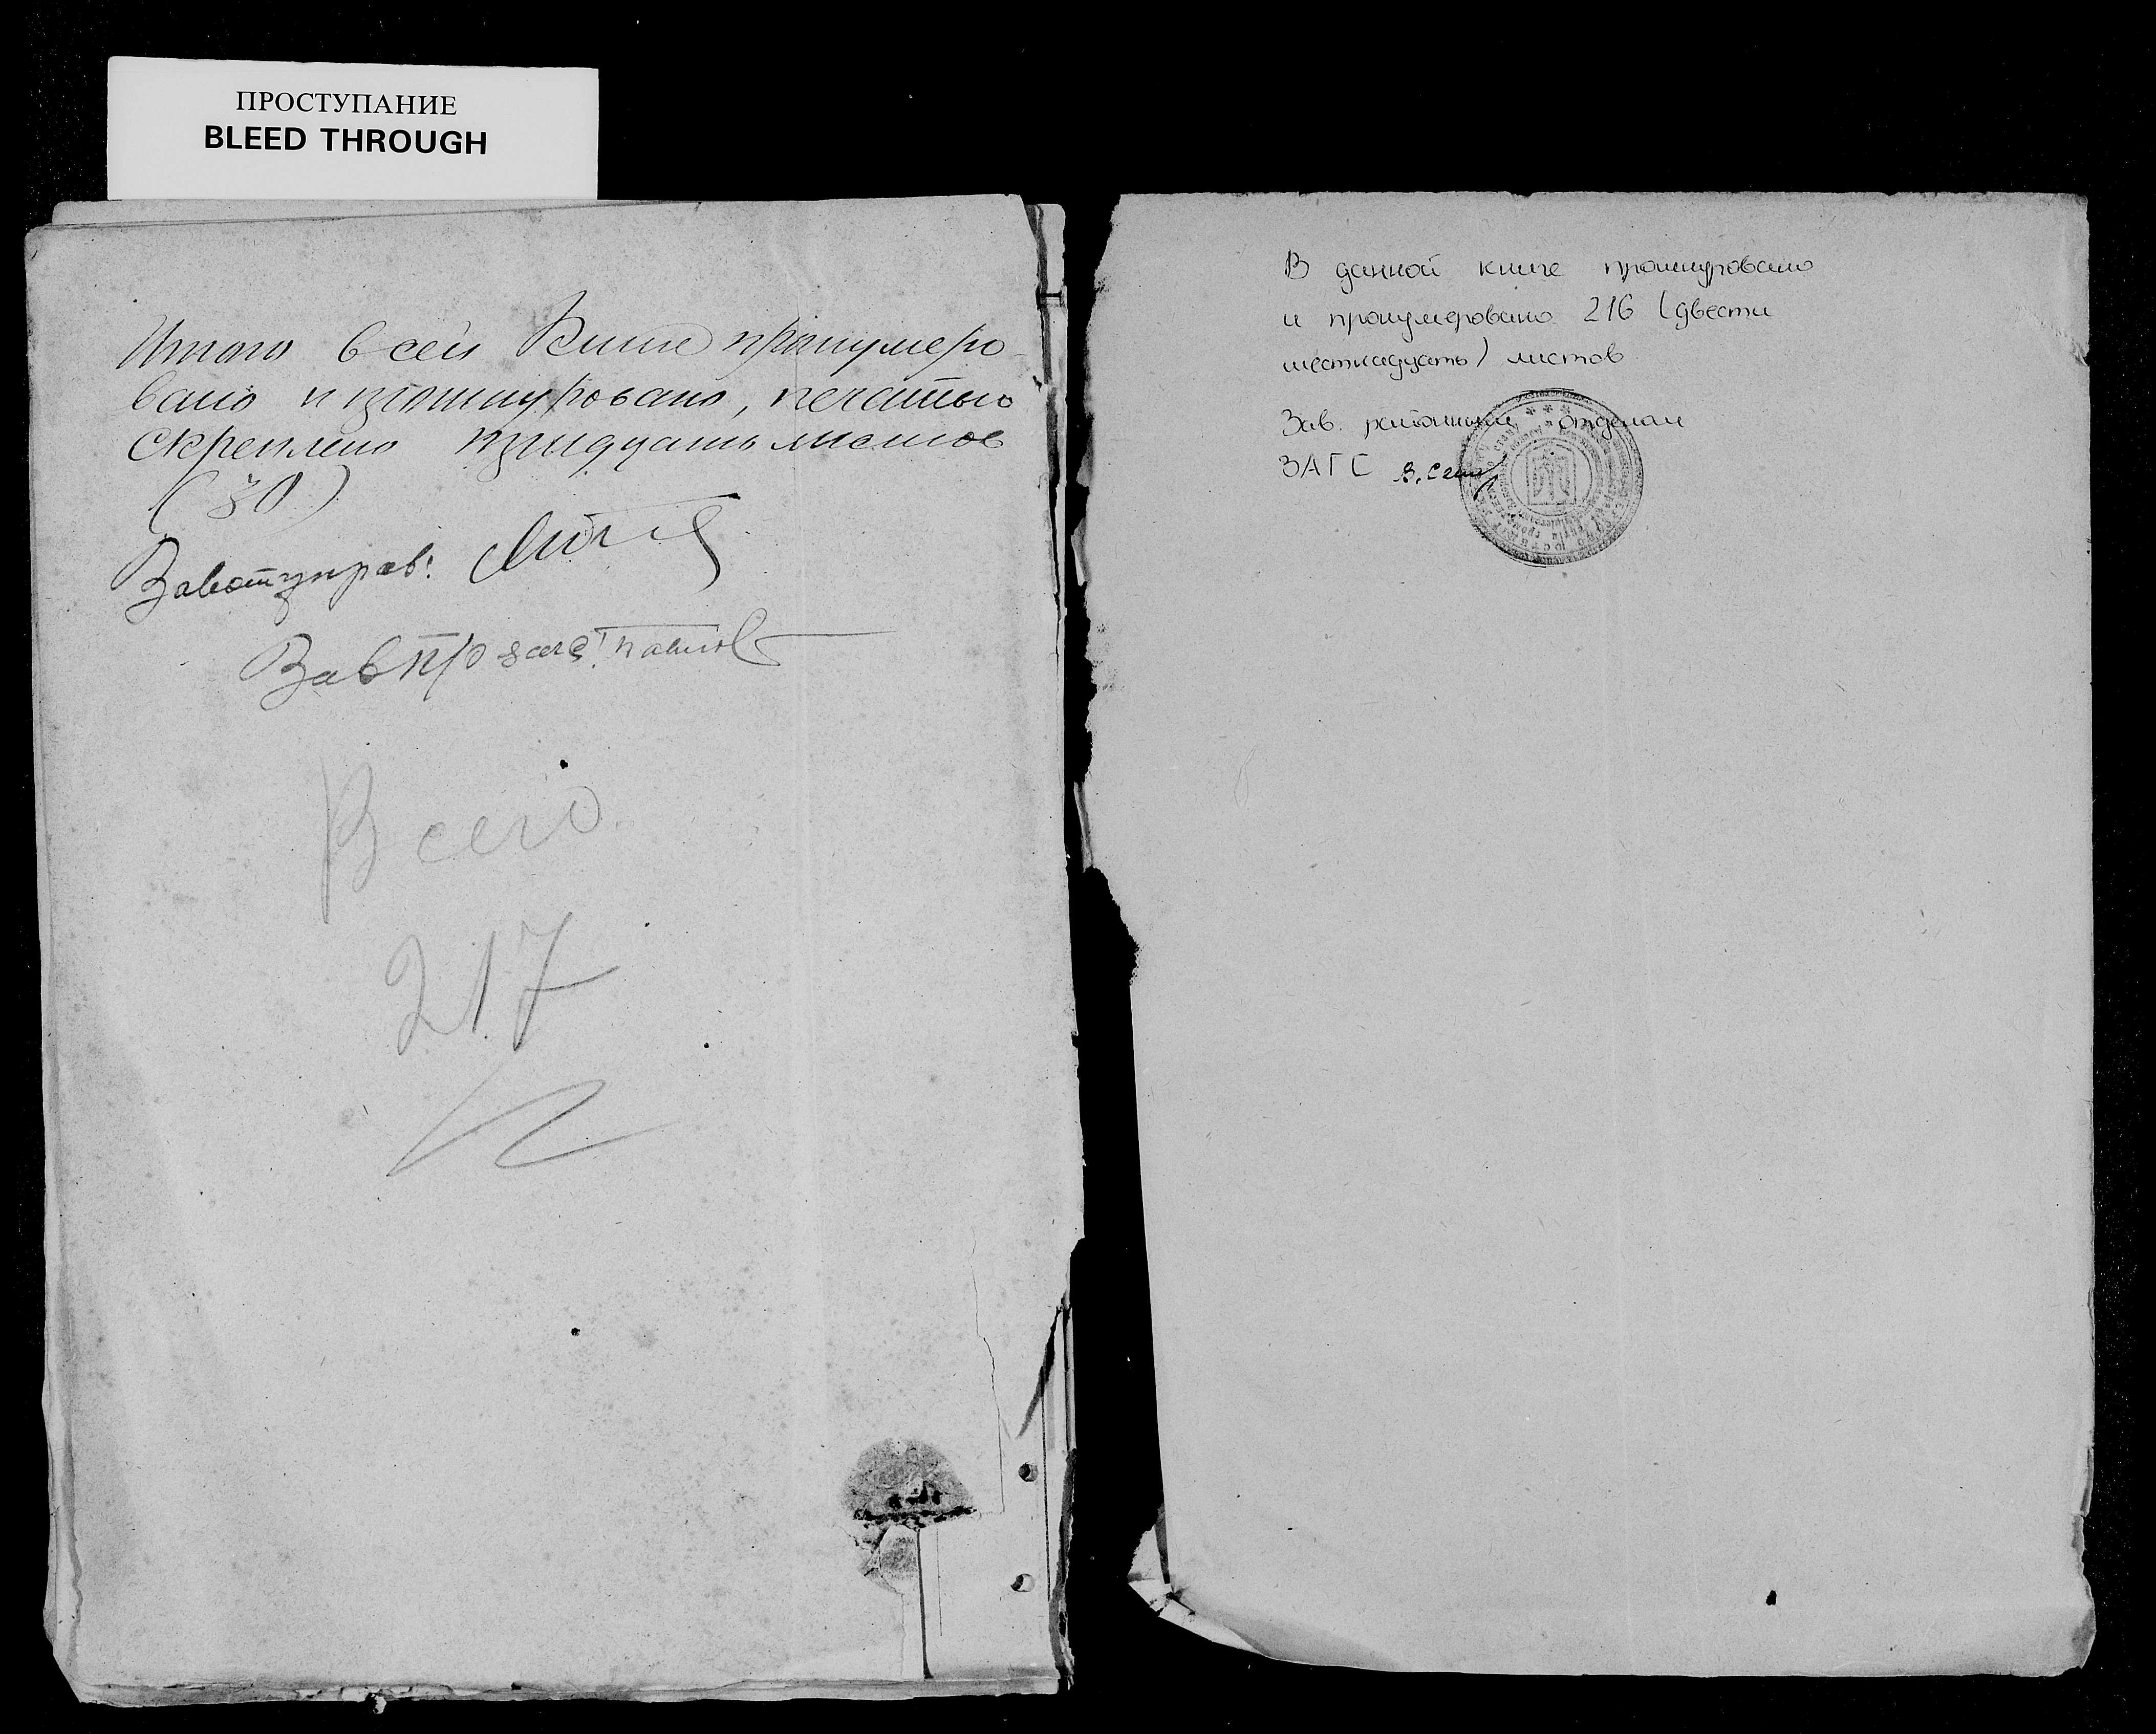 ПРОСТУПАНИЕ
BLEED THROUGH
Итого в сей Книге пронумеро
вано и прошнуровано, печатью
скреплено тридцать листов
(30)
Завотуправ:
Зав п/о загс
Всего
217
В данной книге прошнуровано
и пронумеровано 216 (двести
шестнадцать) листов
Зав. районным отделом
ЗАГС